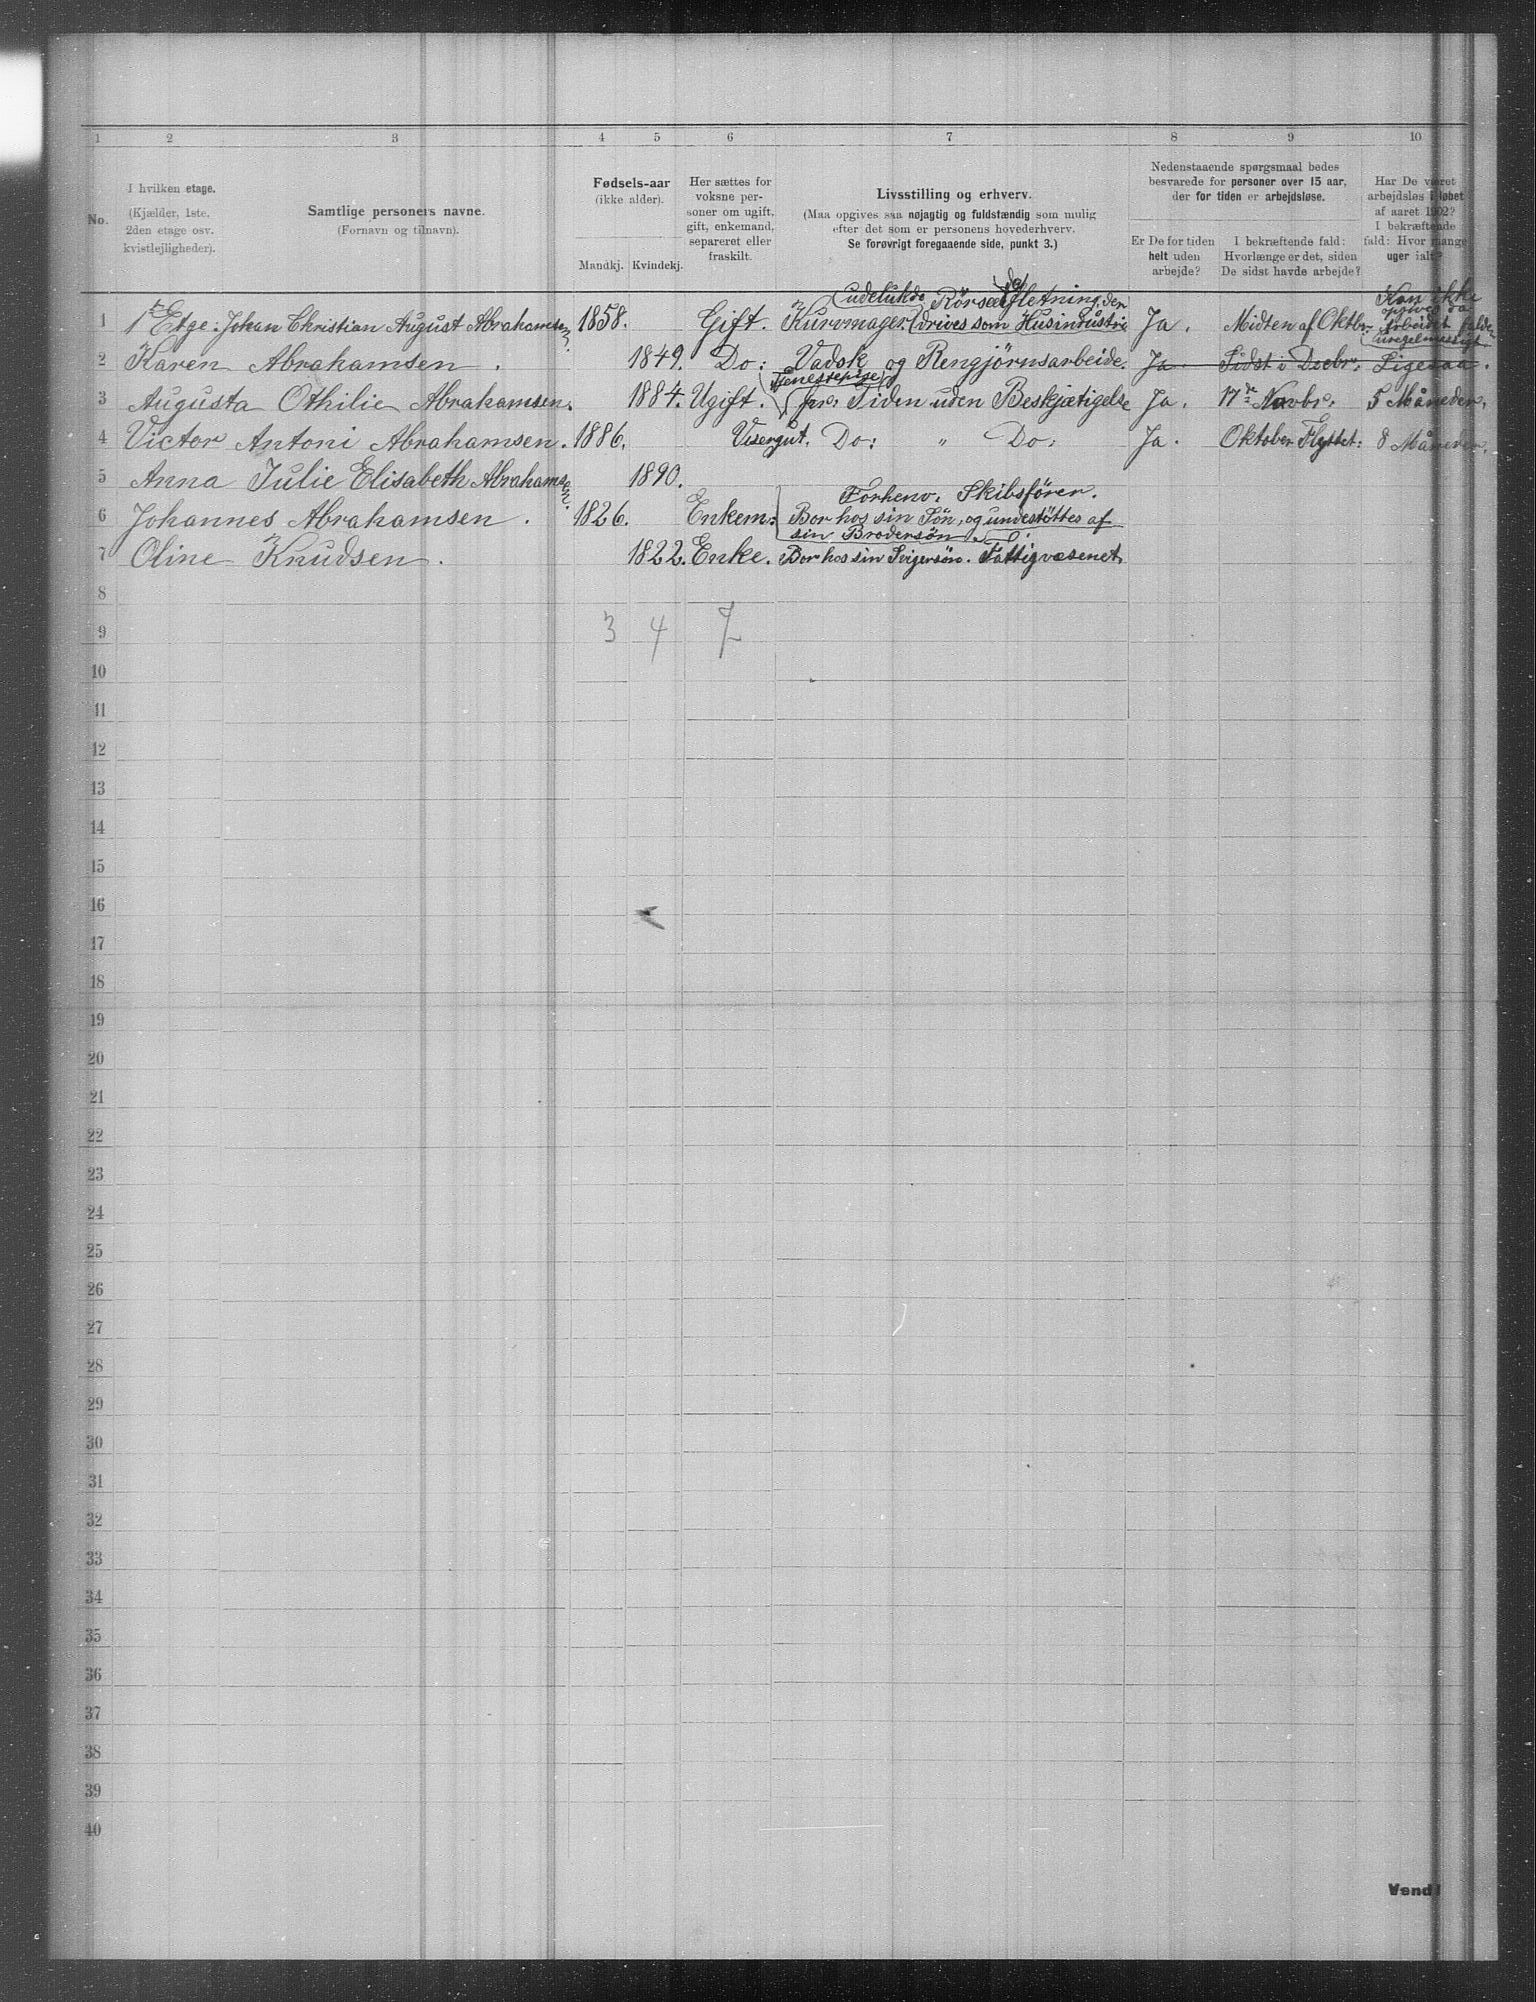 1 2 3 4 5 6 7 8 9 10
No.
I hvilken etage.
(Kjælder, 1ste,
2den etage osv.
kvistlejligheder).
Samtlige personers navne.
(Fornavn og tilnavn).
Fødsels-aar
(ikke alder).
Mandkj. Kvindekj.
Her sættes for
voksne per-
soner om ugift,
gift, enkemand,
separeret eller
fraskilt.
Livsstilling og erhverv.
(Maa opgives saa nøjagtig og fuldstændig som mulig
efter det som er personens hovederhverv.
Se forøvrigt foregaaende side, punkt 3.)
Nedenstaaende spørgsmaal bedes
besvarede for personer over 15 aar,
der for tiden er arbejdsløse.
Er De for tiden
helt uden
arbejde?
I bekræftende fald:
Hvorlænge er det, siden
De sidst havde arbejde?
Har De været
arbejdsløs i løbet
af aaret 1902?
I bekræftende
fald: Hvor mange
uger ialt?
Rörsæde Fletning, der
Kan ikke
opgives da
Arbeidet falder
uregelmæssigt
1 1ste Etge: Johan Christian August Abrahamsen. 1858. Gift. Kurvmager. (drives som Husindustri Ja. Midten af Oktbr.
2 Karen Abrahamsen. 1849. Do: Vadsk og Rengjörnsarbeide. Ja. Sidst i Dcebr. Ligesaa.
Tjenestepige
3 Augusta Othilie Abrahamsen. 1884. Ugift. før. Siden uden Beskjætigelse Ja. 17de Novbr. 5 Måneder.
4 Victor Antoni Abrahamsen. 1886. Visergut. Do: " Do: Ja. Oktober Flyttet: 8 Måneder.
5 Anna Julie Elisabeth Abrahamsen. 1890.
Forhenv. Skibsfören.
6 Johannes Abrahamsen. 1826. Enkem: Bor hos sin Sön, og undestöttes af
sin Brodersön.
7 Oline Knudsen. 1822. Enke. Bor hos sin Svigersön. Fattigvæsenet.
8
9 3 4 7
10
11
12
13
14
15
16
17
18
19
20
21
22
23
24
25
26
27
28
29
30
31
32
33
34
35
36
37
38
39
40
Vend!